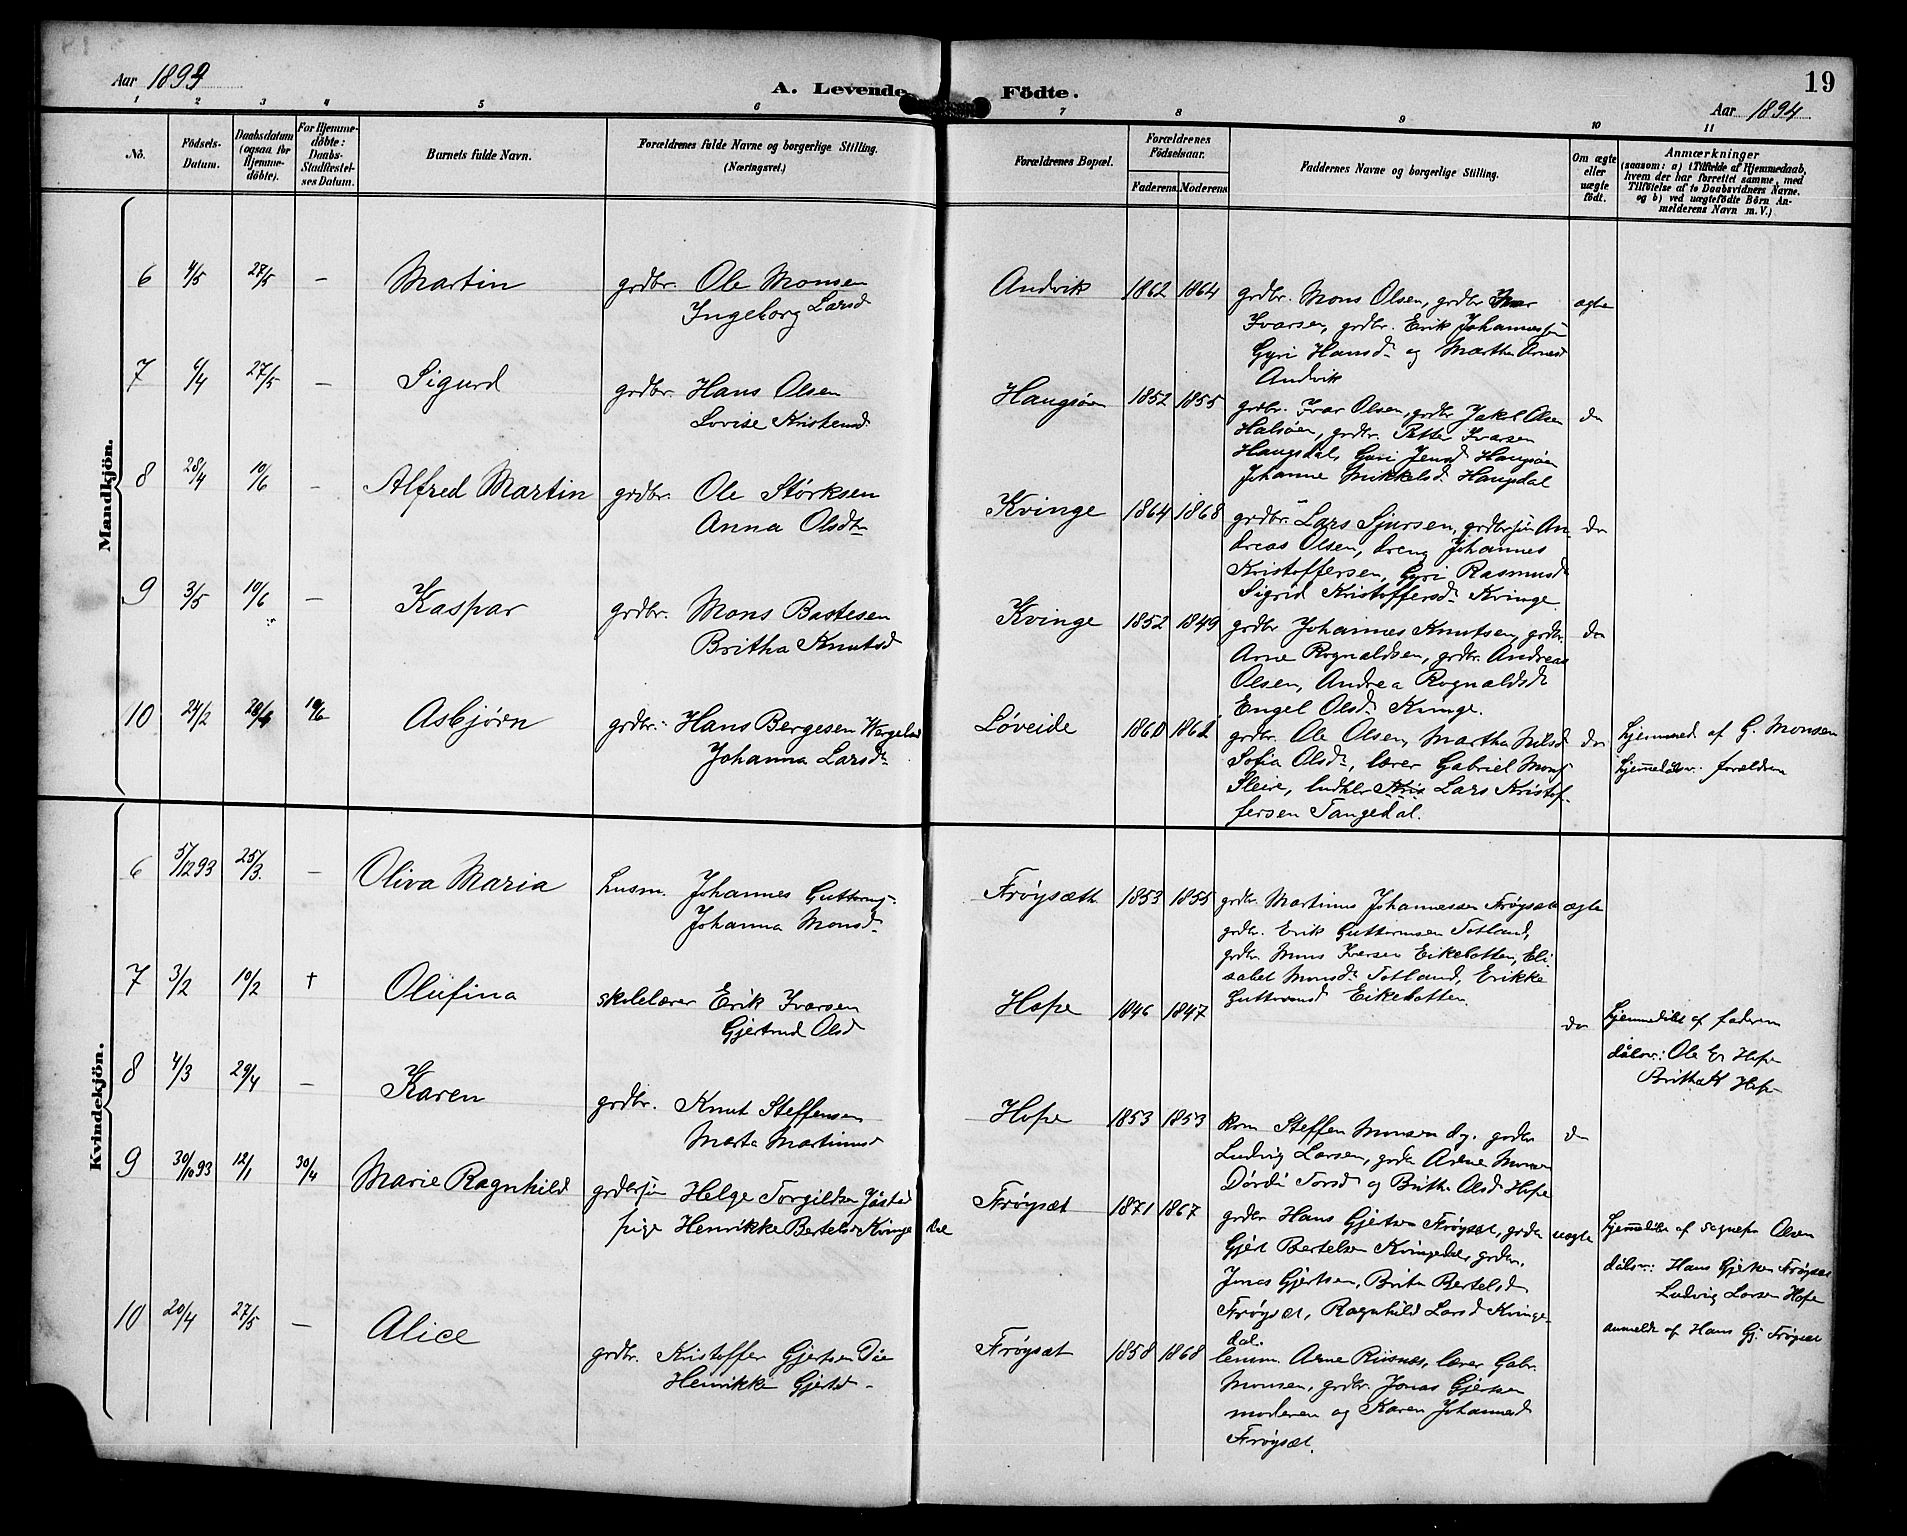 Aar 1894
A. Levende Födte.
19
Aar 1894
1 2 3 4 5 6 7 8 9 10 11
No.
Födsels-
Datum.
Daabsdatum
(ogsaa for
Hjemme-
döbte).
For Hjemme-
döbte:
Daabs-
Stadfæstel-
ses Datum.
Barnets fulde Navn.
Forældrenes fulde Navne og borgerlige Stilling.
(Næringsvei.)
Forældrenes Bopæl.
Forældrenes
Födselsaar.
Faderens. Moderens.
Faddernes Navne og borgerlige Stilling.
Om ægte
eller
uægte
födt.
Anmærkninger
(saasom: a) i Tilfælde af Hjemmedaab,
hvem der har forrettet samme, med
Tilföielse af to Daabsvidners Navne.
og b) ved uægtefödte Börn An-
melderens Navn m. V.)
Mandkjön.
6 4/5 27/5 – Martin grdbr. Ole Monsen
Ingeborg Larsd
Andvik 1862 1864 grdbr. Mons Olsen, grdbr Ivar
Ivarsen, grdbr. Erik Johannessen
Gyri Hansd og Martha Arnesd
Andvik
ægte
7 4/4 27/5 – Sigurd grdbr. Hans Olsen
Lovise Kristensd
Haugsøen 1852 1855 grdbr. Ivar Olsen, grdbr Jakob Olsen
Halsøen, grdbr. Petter Ivarsen
Haugsdal, Guri Jensd Haugsøen
Johanne Mikkelsd Haugsdal
do
8 28/4 10/6 – Alfred Martin grdbr. Ole Størksen
Anna Olsdtr
Kvinge 1864 1868 grdbr. Lars Sjursen, grdbrsøn An-
dreas Olsen, dreng Johannes
Kristoffersen, Gyri Rasmusd
Sigrid Kristoffersd Kvinge
do
9 3/5 10/6 – Kaspar grdbr. Mons Bastesen
Britha Knutsd
Kvinge 1852 1849 grdbr Johannes Knutsen, grdbr.
Arne Rognaldsen, grdbr. Andreas
Olsen, Andrea Rognaldsd
Engel Olsd Kvinge.
do
10 24/2 28/4 10/6 Asbjørn grdbr. Hans Bergesen Wergeland
Johanna Larsd
Løveide 1860 1862 grdbr. Ole Olsen, Martha Nilsd
Sofia Olsd, lærer Gabriel Mons
Sleire, Lars Kristof-
fersen Tangedal.
do
Hjemmed af G. Monsen
forældrene
Kvindekjön.
6 5/12 93 25/3. – Oliva Maria husm. Johannes Guttorms
Johanna Monsd
Frøysæth 1853 1855 grdbr. Martinus Johannessen Frøysæt
grdbr. Erik Guttormsen Totland,
grdbr Mons Iversen Eikebotten, Eli
sabet Monsd Totland, Erikke
Guttormsd Eikebotten
ægte
7 3/2 10/2 † Olufina skolelærer Erik Ivarsen
Gjertrud Olsd
Hope 1846 1847
do
hjemmedøbt af faderen
dåbsv: Ole Er Hope
Britha K Hope
8 4/3 29/4 – Karen grdbr. Knut Steffensen
Marta Martinusd
Hope 1853 1853 Steffen Monsen og grdbr
Ludvig Larsen, grdbr Arne Monsen
Dordi Torsd og Brith Olsd Hope
do
9 30/10 93 12/1 30/4 Marie Ragnhild grdbrsøn Helge Torgildsen
pige Henrikke Bertelsd Kvinge dal
Frøysæt 1871 1867 grdbr Hans Gjertsen Frøysæt, grdbr
Gjert Bertelsen Kvingedal, grdbr.
Jonas Gjertsen, Brita Bertelsd
Frøysæt, Ragnhild Larsd Kvinge-
dal.
uægte
hjemmedøbt af sognepr Olsen
dåbsv: Hans Gjertsen Frøysæt
Ludvig Larsen Hope
anmeldt af Hans Gj. Frøysæt
10 20/4 27/5 – Alice grdbr. Kristoffer Gjertsen
Henrikke Gjertsd
Frøysæt 1858 1868 Arne Risnes, lærer Gabr.
Monsen, grdbr. Jonas Gjertsen
moderen og Karen Johannesd
Frøysæt.